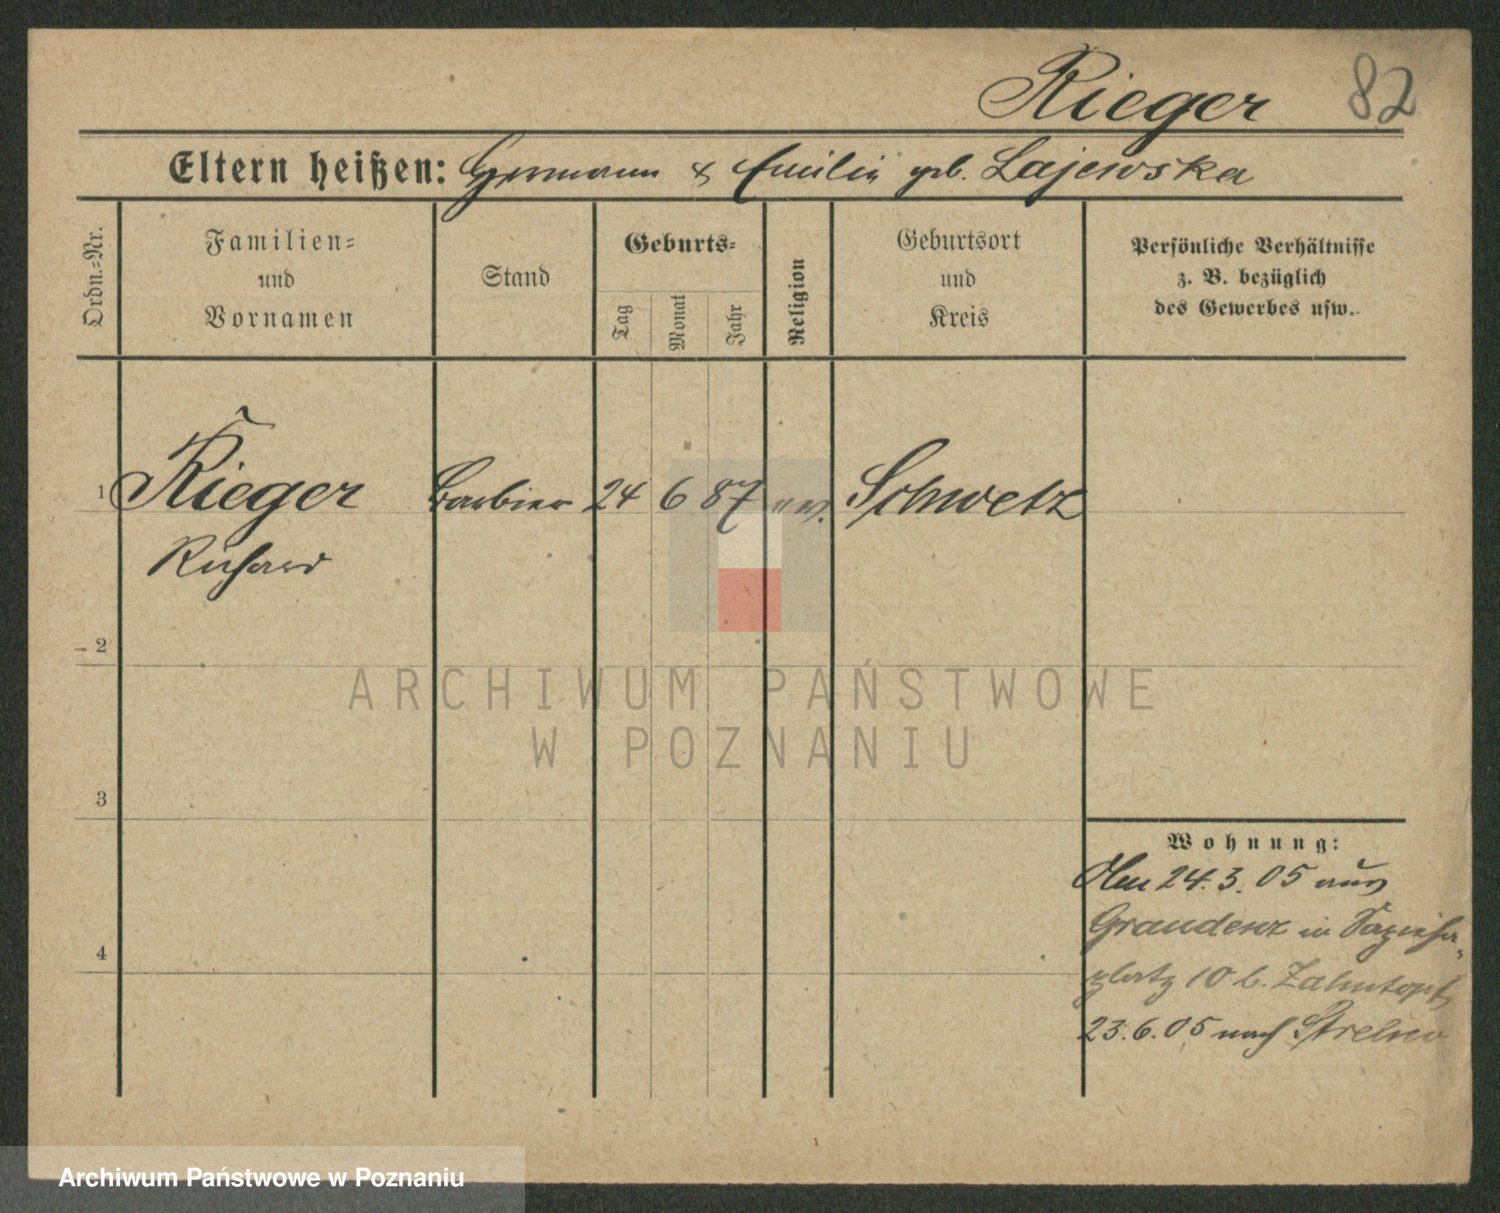 Rieger 82
Eltern heißen: Hermann & Emilie geb. Lajewska
Ordn.=Nr.
Familien=
und
Vornamen
Stand
Geburts=
Tag
Monat
Jahr
Religion
Geburtsort
und
Kreis
Persönliche Verhältnisse
z. B. bezüglich
des Gewerbes usw.
1 Rieger Barbier 24 6 87 ev. Schwetz
Richard
2
ARCHIWUM PAŃSTWOWE
W POZNANIU
3
Wohnung:
Den 24.3.05 aus
Graudenz in
platz 10 b.
4
23.6.05 nach Strelno
Archiwum Państwowe w Poznaniu